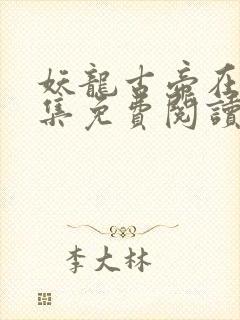 妖龍古帝在
集免費閱讀
李大林